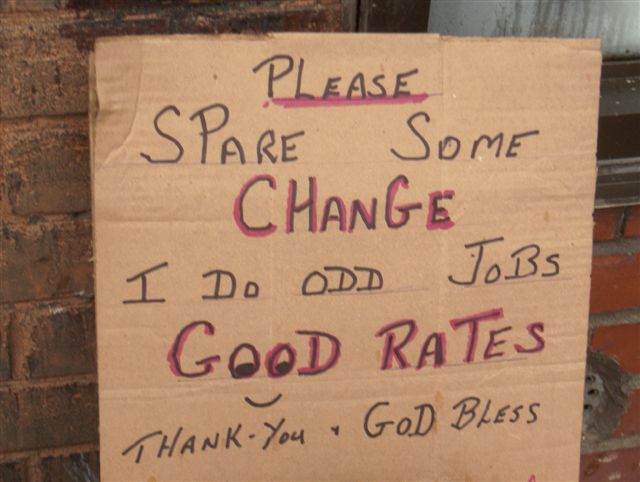 PLEASE
SPARE SOME
CHANGE
I DO ODD JOBS
GOOD RATES
THANK-YOU . GOD BLESS